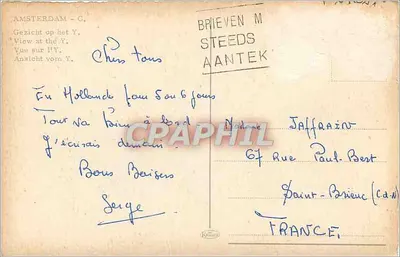 AMSTERDAM - C.
Gezicht op het Y.
View at thef Y.
Vue sur l'Y.
Ansicht vom Y.
BRIEVEN M
STEEDS
AANTEK
Chers tous
En Hollande pour 5 ou 6 jours
Tout va bien à bord
J'écrirais demain.
Bons Baisers
Serge
CPAPHIL
JAFFRAIN
67 Rue Paul-Bert
Saint-Brieuc (C.d.N)
FRANCE.